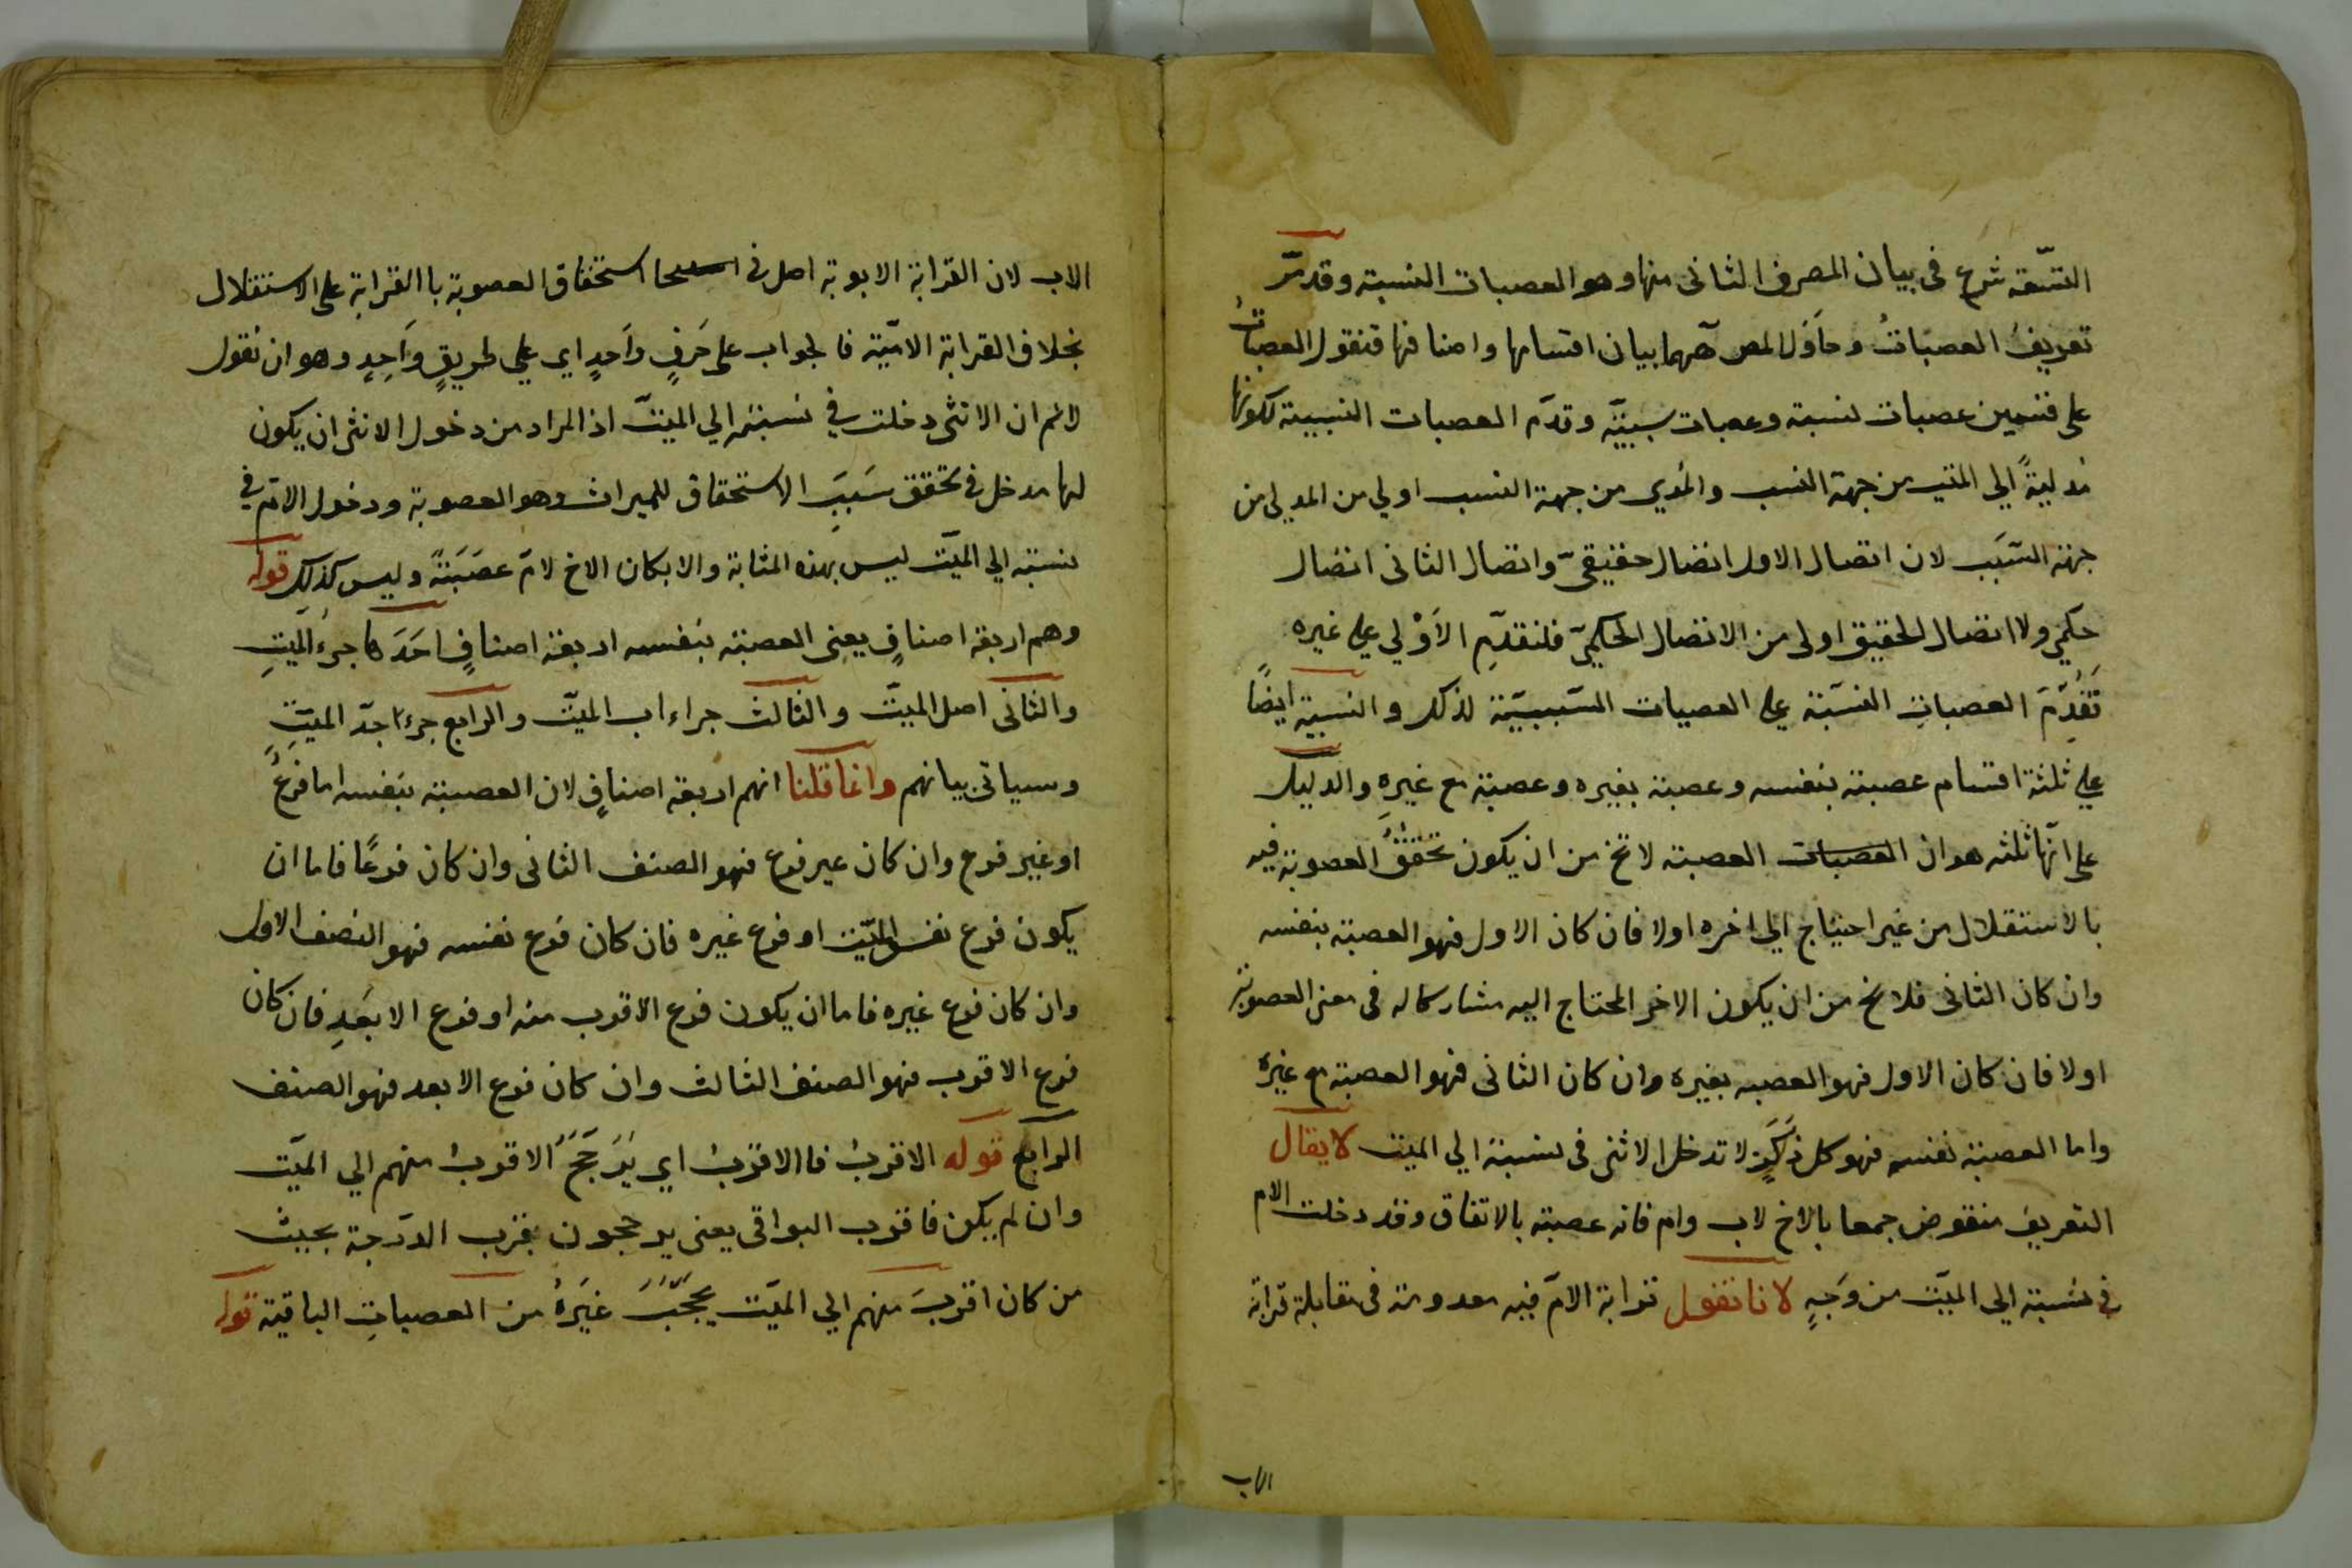 التسعة شرع فى بيان المصرف الثانى منها وهو العصبات النسبة وقد مرّ
تعريف العصباتُ وحاوَل المص ههما بيان اقسامها واصنافها فنقول العصباتُ
على قسمين عصبات نسبة وعصبات سببيّه وقدّم العصبات النسبية لكونها
مدليةً الى الميت من جهة النسب والمدلى من جهة النسب اولي من المدلى من
جهة السَبَب لان اتصال الاول اتصال حقيقىّ واتصال الثانى اتصال
حكمي ولا اتصال الحقيق اولى من الاتصال الحكميّ فلتقدّمِ الاَوْلي علي غيره
تَقُدّمَ العصباتِ النسَبّة علي العصبات السَببيّة لذلك والنسبية ايضًا
علي ثلثة اقسام عصبة بنفسه وعصبة بغيره وعصبة مع غيرِه والدليل
على انّها ثلثه هو ان العصبات العصبته لا تخ من ان يكون تحققُ العصوبة فيه
بالاستقلال من غير احتياج الي اخره اولا فان كان الاول فهو العصبة بنفسه
وان كان الثانى فلا يخ من ان يكون الاخر المحتاج اليه مشاركا له فى معنى العصوبة
اولا فان كان الاول فهو العصبه بغيره وان كان الثانى فهو العصبة مع غيره
واما العصبة نفسه فهو كل ذَكَرٍ لا تدخل الانثى فى نسبتة الي الميت لا يقال
التعريف منقوض جمعا بالاخ لاب وام فانه عصبته بالاتفاق وقد دخلت الام
في نسَبته الى الميّت من وَجهٍ لانا نقول قرابة الامّ فيه معدومة فى مقابلة قرابة
الاب
الاب لان القرابة الابوية اصل فى استحقاق العصوبة با القرابة على الاستقلال
بخلاف القرابة الاميّة فالجواب على حَرفٍ وَاحدٍ اي علي طريقٍ وَاحِدٍ وهو ان نقول
لانم ان الانثى دخلت في نسبته الي الميتّ اذ المراد من دخول الانثى ان يكون
لها مدخل فى تحقق سَببَ الاستحقاق للميراث وهو العصوبة ودخول الامّ في
نسبته الي الميّت ليس بهذه المثابة والا بكان الاخ لامّ عصَبَةً وليس كذلك قوله
وهم اربعة اصنافٍ يعنى العصبته بنفسه اربعة اصنافٍ احَدَها جزءُ الميّتِ
والثانى اصل الميّت والثالث جزاء اب الميّت والرابع جزء اجدّ الميّتِ
وسياتى بيانهم وانما قلنا انهم اربعة اصنافٍ لان العصبته بنفسه اما فرعٌ
او غير فرع وان كان غير فرع فهو الصنف الثانى وان كان فرعًا فاما ان
يكون فرع نفس الميّت او فرع غيره فان كان فرع نفسه فهو النصف الاول
وان كان فرع غيره فاما ان يكون فرع الاقرب منه او فرع الابعَدِ فان كان
فرع الاقرب فهو الصنف الثالث وان كان فرع الابعد فهو الصنف
الرابع قوله الاقربُ فا الاقرَبُ اي يُرَجَّحَ الاقربُ منهم الي الميّت
وان لم يكن فاقرب البواقى يعنى يرجحون بقرب الدّرجة بحيث
من كان اقربَ منهم الي الميّت يحجَبُ غيَرهُ من العصباتِ الباقية قوله